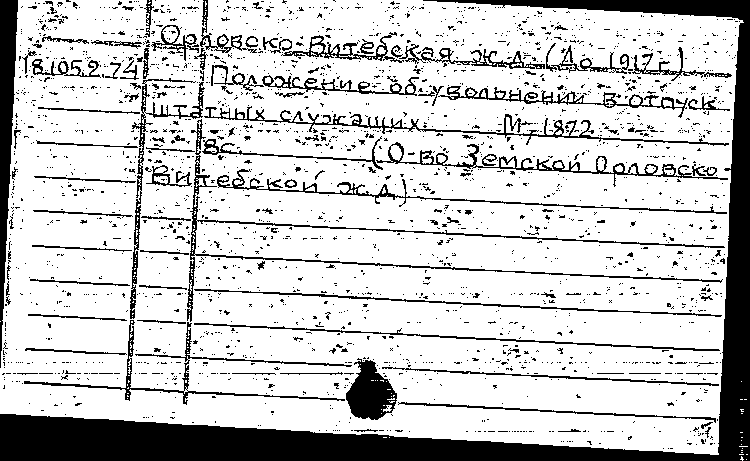 Орловско-Витебская ж.д. (До 1917г.)
18.105.2.74 Положение об увольнении в отпуск
штатных служащих. М, 1872.
8с. (О-во Земской Орловско-
Витебской ж.д.)